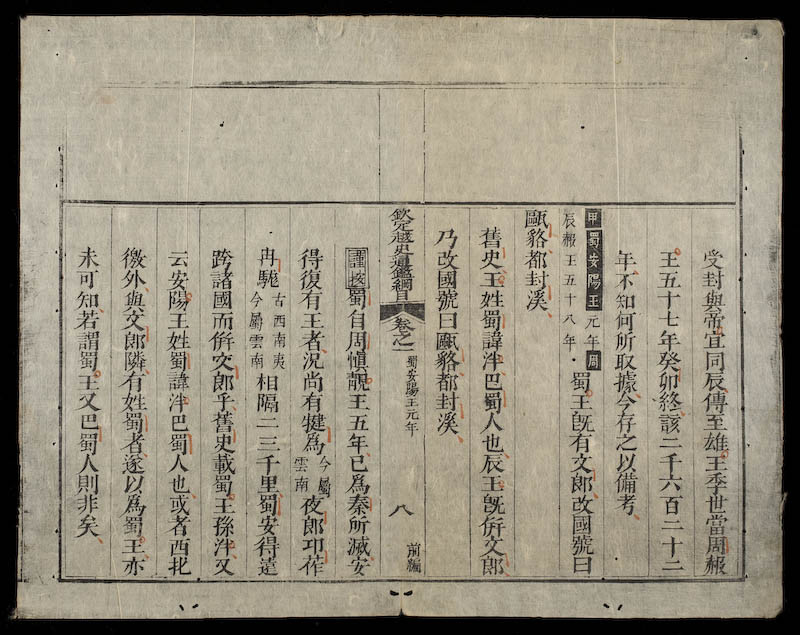 受封與帝宜同辰傳至雄王季世當周赧
王五十七年癸卯終該二千六百二十二
年不知何所取據今存之以備考
甲辰蜀安陽王元年周赧王五十八年蜀王旣有文郎改國號曰
甌貉都封溪
舊史王姓蜀諱泮巴蜀人也辰王旣倂文郎
乃改國號曰甌貉都封溪
欽定越史通鑑綱目 卷之一 蜀安陽王元年 八 前編
謹按蜀自周愼靚王五年已爲秦所滅安
得復有王者況尚有犍爲今屬雲南夜郎卭莋
冉駹古西南夷今屬雲南相隔二三千里蜀安得遠
跨諸國而倂文郎乎舊史載蜀王孫泮又
云安陽王姓蜀諱泮巴蜀人也或者西北
徼外與文郎隣有姓蜀者遂以爲蜀王亦
未可知若謂蜀王又巴蜀人則非矣